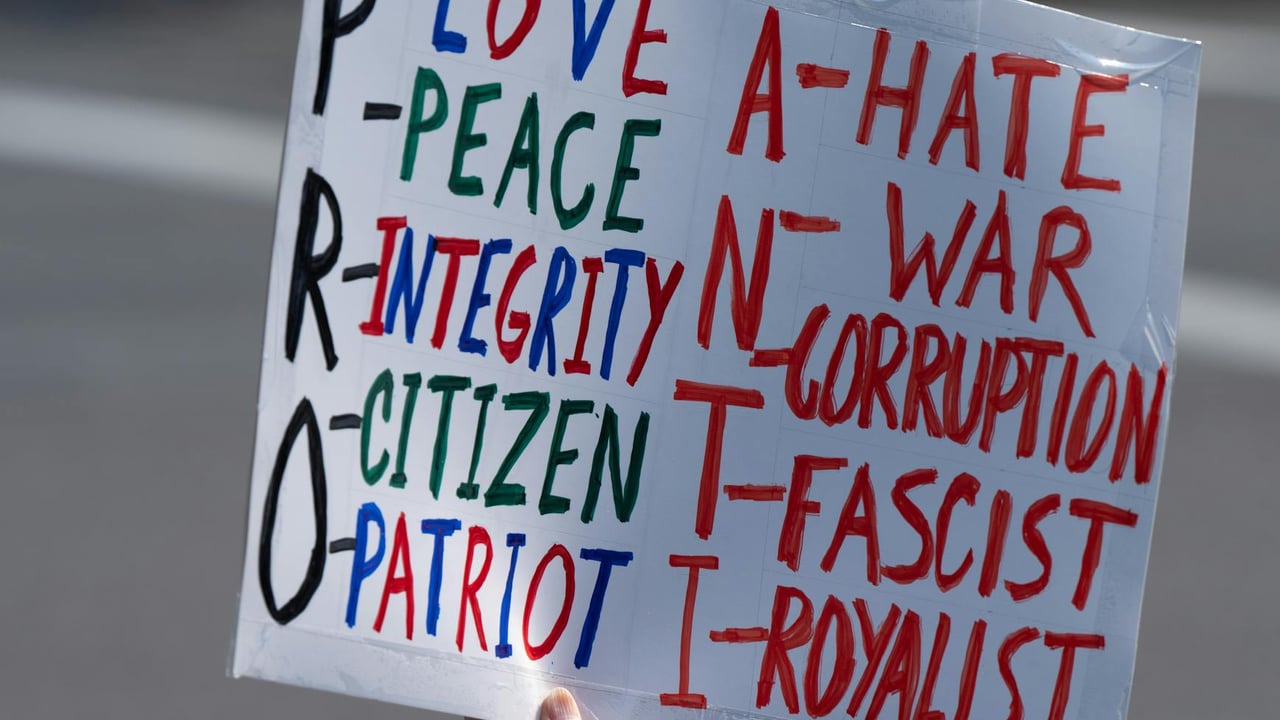 PRO
LOVE
-PEACE
-INTEGRITY
-CITIZEN
-PATRIOT
ANTI
-HATE
-WAR
-CORRUPTION
-FASCIST
-ROYALIST